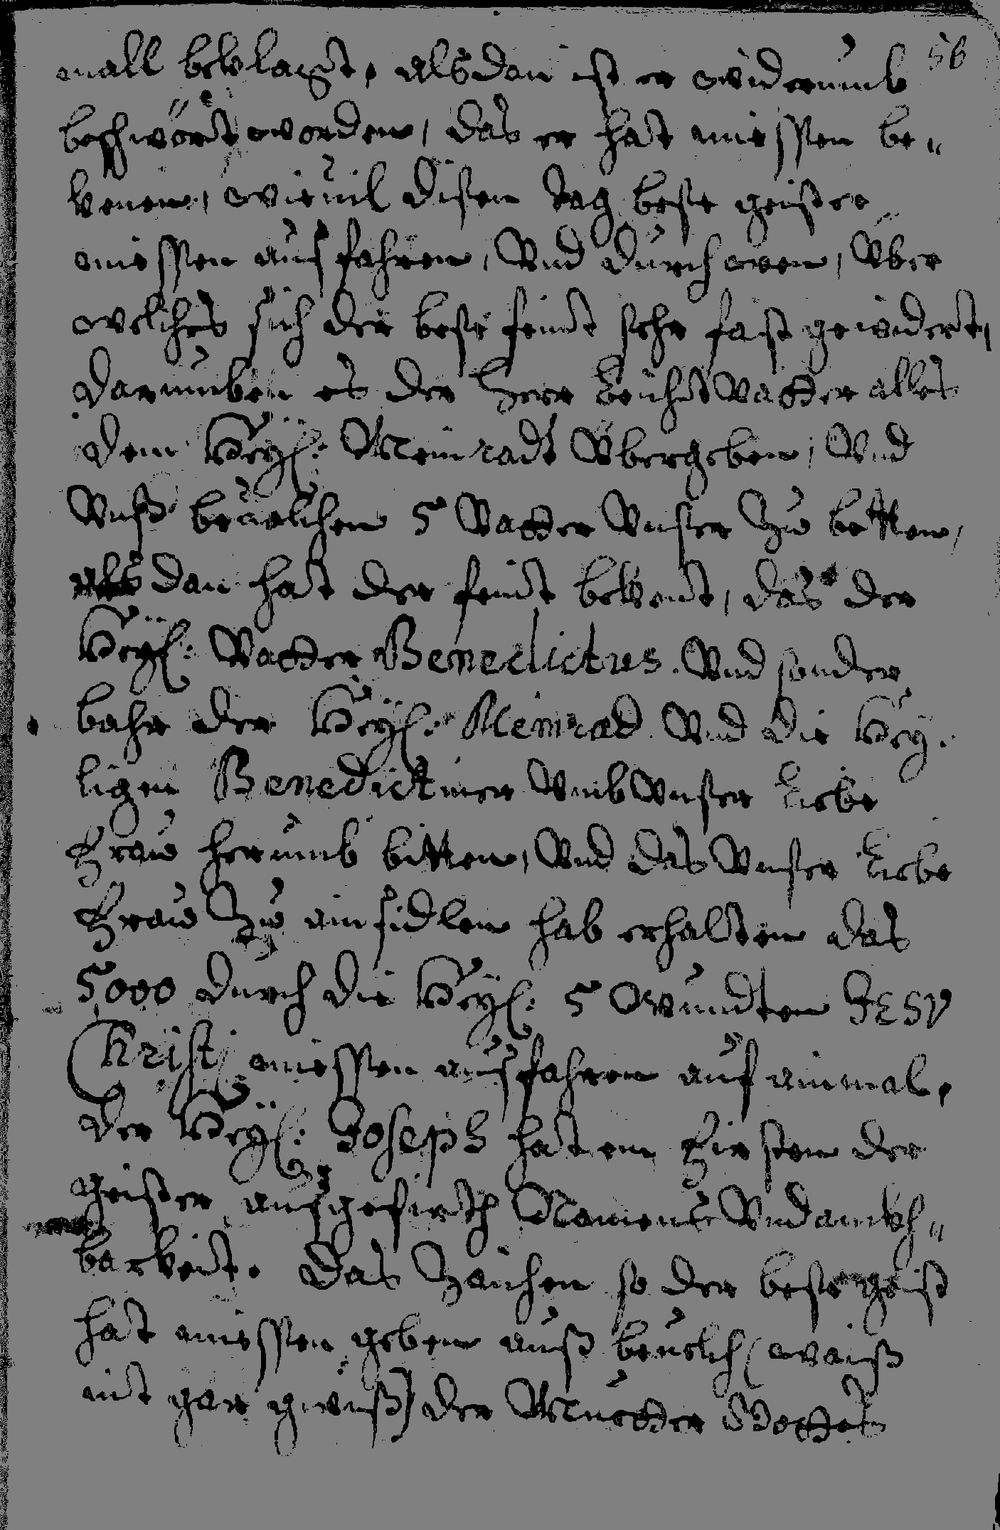 56
mall beklagt, alsdan ist er widerumb
beschwört worden, das er hat miessen be„
kenen, wieuil disen tag bese geister
miessen ausfahren, Vnd durch wen, Vber
welches sich der bese feindt sehr fast gewidert,
darumben es der Herr beicht Vatter alles
dem Heÿl: Meinradt Vbergeben, Vnd
Vnß beuolchen 5 Vatter Vnser Zu betten,
als dan hat der feindt bekent, das der
Heÿl: Vatter Benedictus. Vnd sonder
bahr der Heÿl: Meinrad Vnd die Heÿ.
ligen Benedictiner Vmb Vnser Liebe
Frau herumb bitten, Vnd das Vnser Liebe
Frau Zu einsidlen hab erhalten das
5000 durch die Heÿl: 5 Wundten JESV
Christj miessen ausfahren auf einmal,
der Heÿl: Joseph hat ein Firsten der
geister ausgefierth Namens Vndanckh„
barkeit. Das Zaichen so der bese geist
hat miessen geben auß beuelch (waiß
nit gar gwiß) der Muetter Gottes